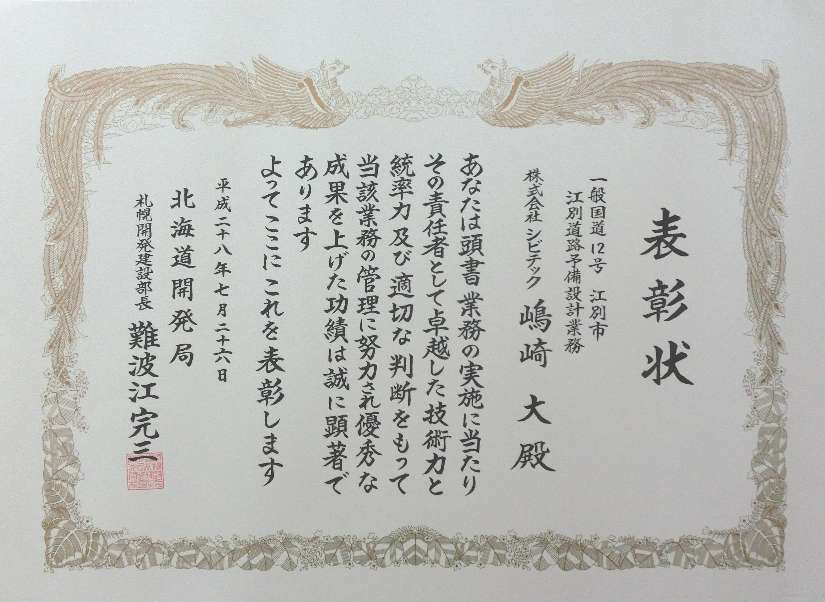 表彰状
一般国道12号 江別市
江別道路予備設計業務
株式会社 シビテック 嶋崎 大 殿
あなたは頭書業務の実施に当たり
その責任者として卓越した技術力と
統率力及び適切な判断をもって
当該業務の管理に努力され優秀な
成果を上げた功績は誠に顕著で
あります
よってここにこれを表彰します
平成二十八年七月二十六日
北海道開発局
札幌開発建設部長 難波江完三